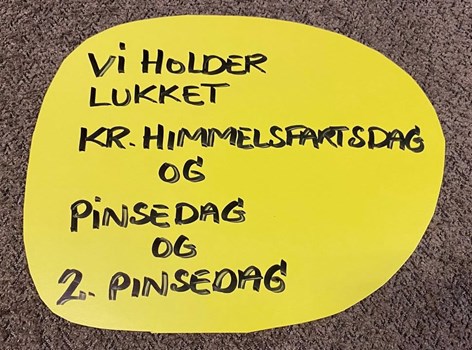 Vi HOLDER
LUKKET
KR. HIMMELSFARTSDAG
OG
PiNSEDAG
OG
2. PINSEDAG